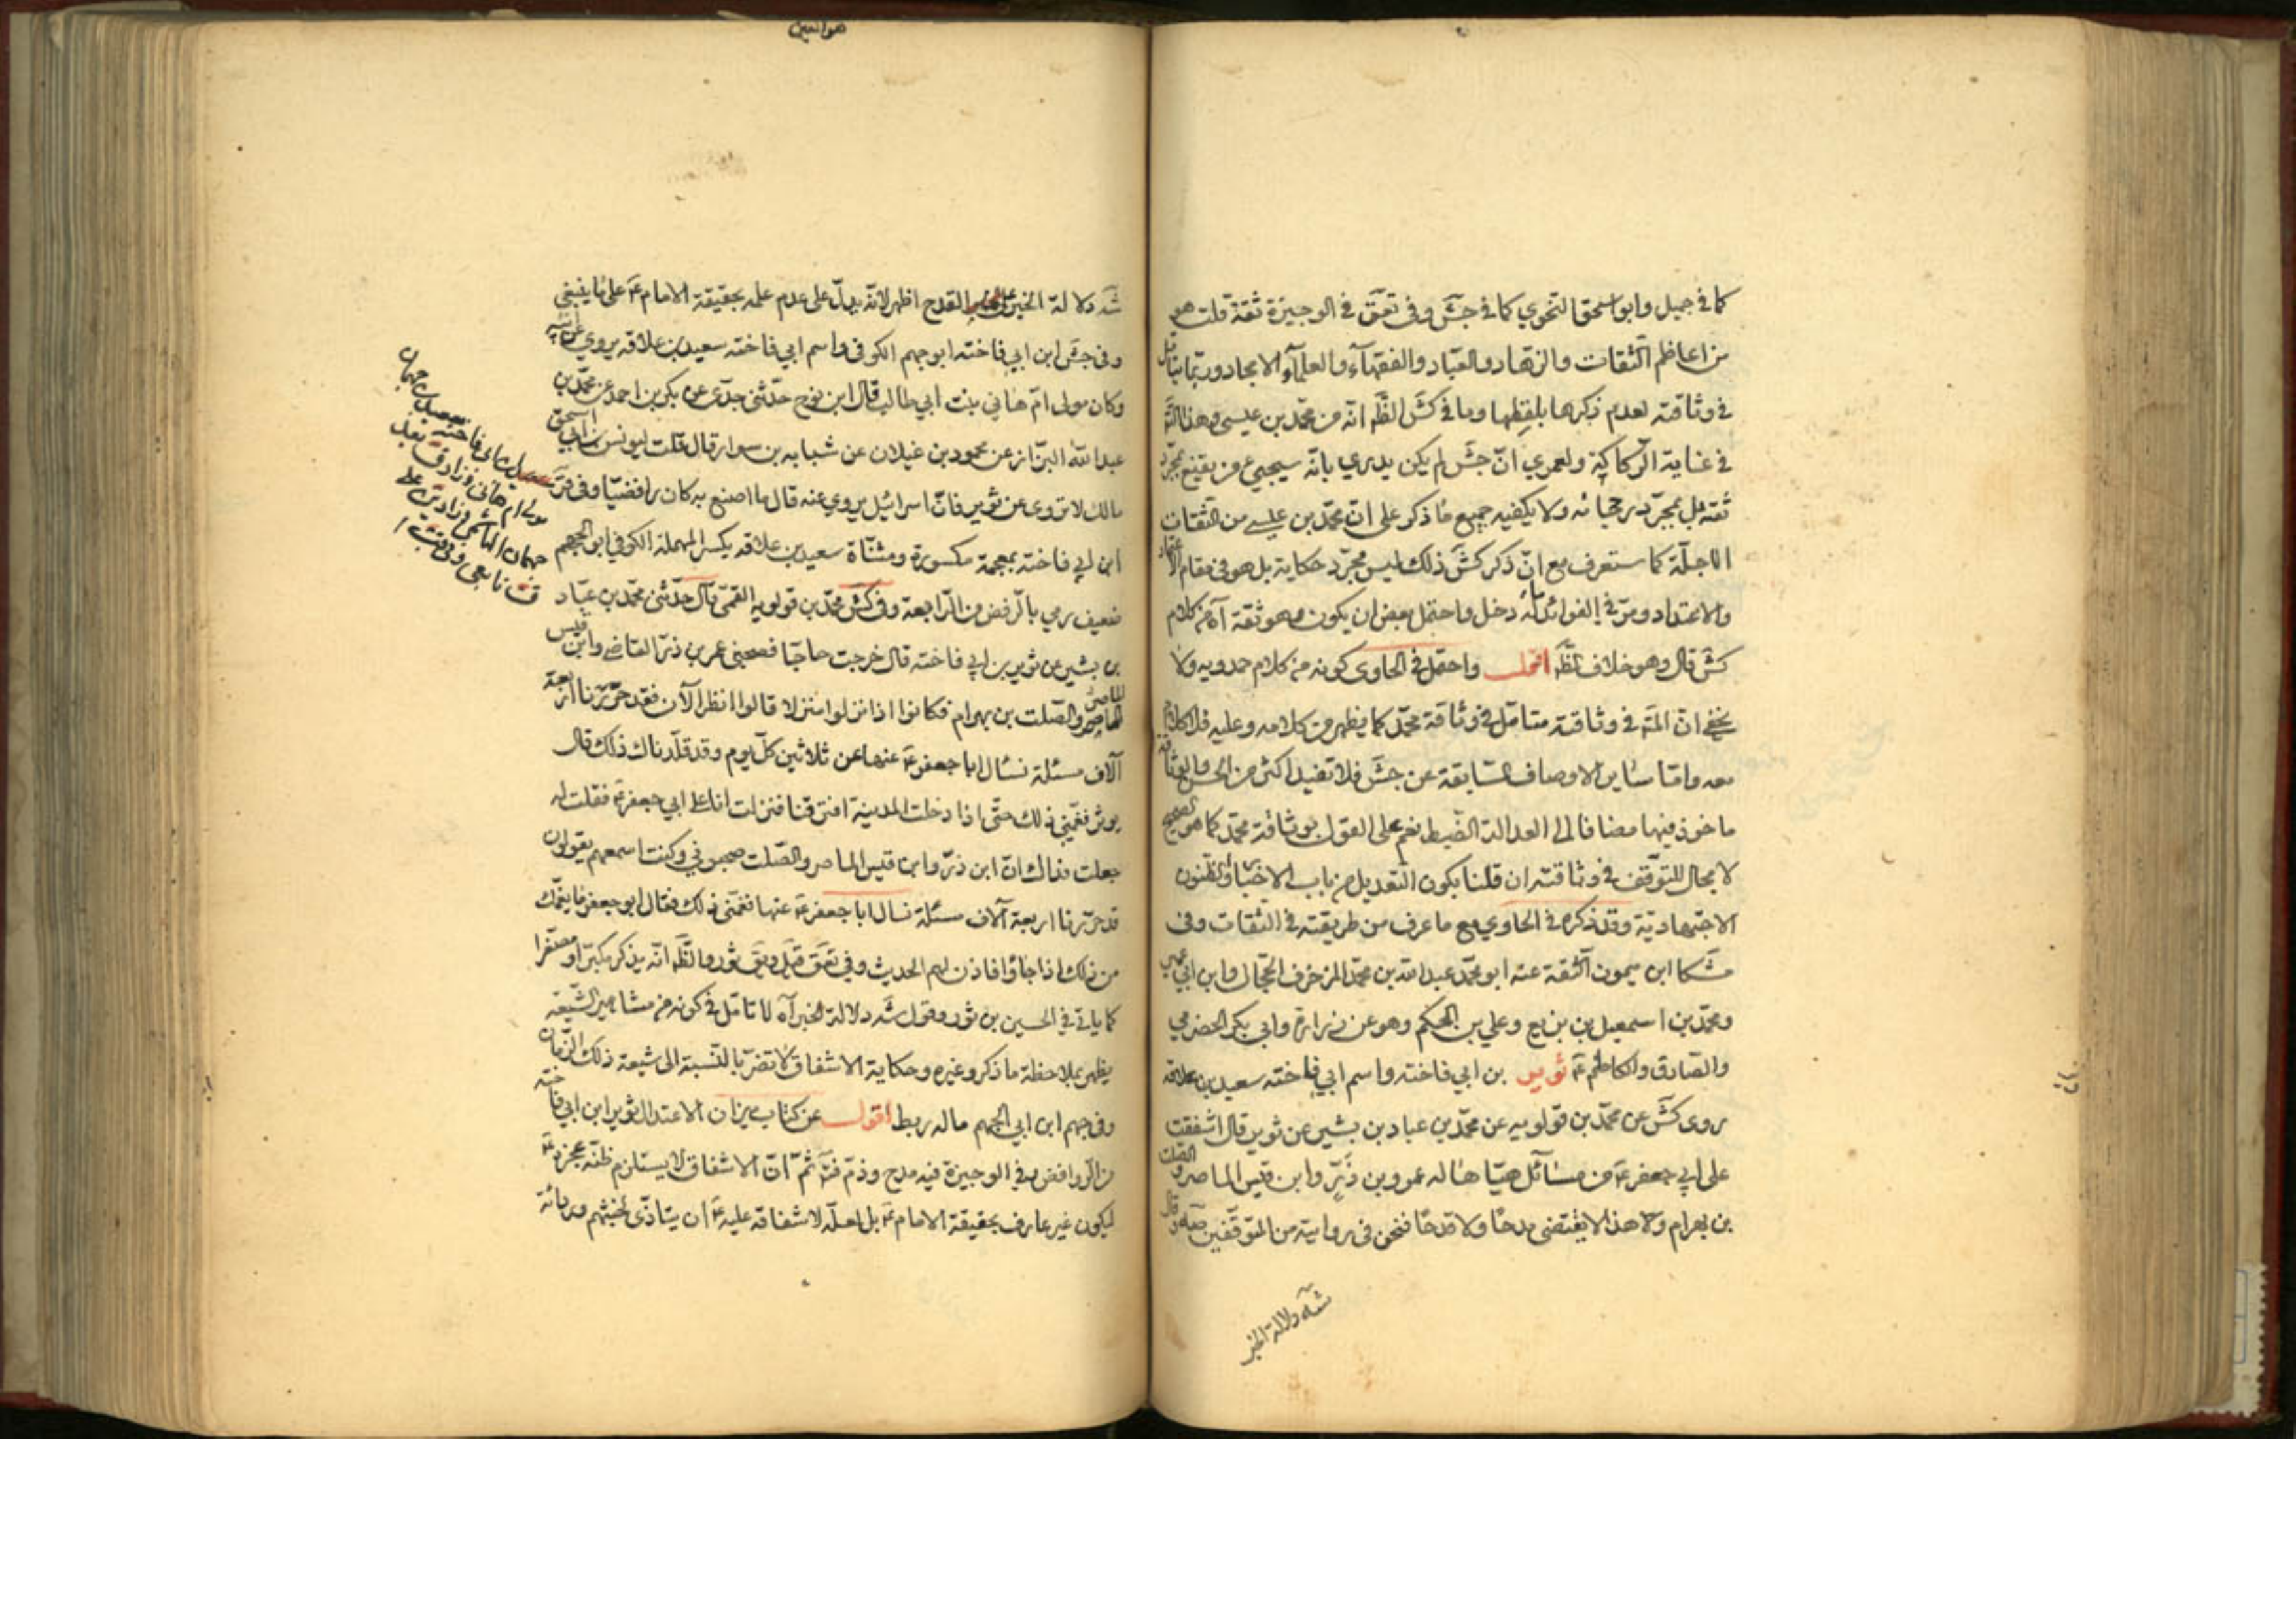 كما في جميل وابو اسحق النحوي كما في جش وفي تعق في الوجيزة ثقة قلت هو
من اعاظم الثقات والزهاد والعباد والفقهاء والعلماء الامجاد وربما يتأمل
في وثاقته لعدم ذكرها بلفظها وما في كش الظ انه من محمد بن عيسى وهذا
في غاية الركاكة ولعمري ان جش لم يكن يدري بانه سيجيء من يقنع بمجرد
ثقة بل بمجرد رجحانه ولا يكفيه جميع ما ذكر على ان محمد بن عيسى من الثقات
الاجلة كما ستعرف مع ان ذكر كش ذلك ليس مجرد حكاية بل هو في مقام الاعتماد
والاعتداد ومر في الفوائد ماله دخل واحتمل بعض ان يكون وهو ثقة آه من كلام
كش قال وهو خلاف الظ اقول واحتمل في الحاوي كونه من كلام حمدويه ولا
يخفى ان المتأمل في وثاقته متأمل في وثاقة محمد كما يظهر من كلامه وعليه فلا كلام
معه واما سائر الاوصاف السابقة عن جش فلا تفيد اكثر من الحسن والوثاقة
ماخوذ فيها مضافا الى العدالة الضبط نعم على القول بوثاقة محمد كما هو الصحيح
لا مجال للتوقف في وثاقته ان قلنا بكون التعديل من باب الاخبار او الظنون
الاجتهادية وقد ذكره في الحاوي مع ما عرف من طريقته في الثقات وفي
مشكا ابن ميمون الثقة عنه ابو محمد عبد الله بن محمد المزخرف الحجال وابن ابي عمير
ومحمد بن اسمعيل بن بزيع وعلي بن الحكم وهو عن زرارة وابي بكر الحضرمي
والصادق والكاظم ع ثوير بن ابي فاخته واسم ابي فاخته سعيد بن علاقه
روى كش عن محمد بن قولويه عن محمد بن عباد بن بشير عن ثوير قال اشفقت
على ابي جعفر ع من مسائل هياها له عمرو بن ذر وابن قيس الماصر والصلت
بن بهرام وهذا لا يقتضي مدحا ولا قدحا فنحن في روايته من المتوقفين صه وقال
شه دلالة الخبر
شه دلالة الخبر على القدح اظهر لانه يدل على عدم علمه بحقيقة الامام ع على ما ينبغي
وفي جش ابن ابي فاخته ابو جهم الكوفي واسم ابي فاخته سعيد بن علاقه يروي عن ابيه
وكان مولى ام هاني بنت ابي طالب قال ابن نوح حدثني جدي عن بكر بن احمد عن محمد بن
عبد الله البزاز عن محمود بن غيلان عن شبابه بن سوار قال قلت ليونس بن ابي اسحق
مالك لا تروي عن ثوير فان اسرائيل يروي عنه قال ما اصنع به كان رافضيا وفي قر
ابن ابي فاخته بمعجمة مكسورة ومثناة سعيد بن علاقه بكسر المهملة الكوفي ابو الجهم
ضعيف رمي بالرفض من الرابعة وفي كش محمد بن قولويه القمي قال حدثني محمد بن عباد
بن بشير عن ثوير بن ابي فاخته قال خرجت حاجا فصحبني عمر بن ذر القاضي وابن قيس
الماصر والصلت بن بهرام فكانوا اذا نزلوا منزلا قالوا انظر الآن فقد حررنا اربعة
آلاف مسئلة نسال ابا جعفر ع عنها عن ثلاثين كل يوم وقد قلدناك ذلك قال
ثوير فغمني ذلك حتى اذا دخلت المدينة افترقنا فنزلت انا على ابي جعفر ع فقلت له
جعلت فداك ان ابن ذر وابن قيس الماصر والصلت صحبوني وكنت اسمعهم يقولون
قد حررنا اربعة آلاف مسئلة نسال ابا جعفر ع عنها فغمني ذلك فقال ابو جعفر ما يغمك
من ذلك اذا جاؤا فاذن لهم الحديث وفي تعق قيل وبق ثور والظ انه يذكر مكبرا ومصغرا
كما ياتي في الحسين بن ثور وقول شه دلالة الخبر آه لا تامل في كونه من مشاهير الشيعة
يظهر بملاحظة ما ذكر وغيره وحكاية الاشفاق لا تضر بالنسبة الى شيعة ذلك الزمان
وفي جهم ابن ابي الجهم ماله ربط اقول عن كتاب ميزان الاعتدال ثوير ابن ابي فاخته
من الروافض وفي الوجيزة فيه مدح وذم ثم ان الاشفاق لا يستلزم ظنه عجزه ع
ليكون غير عارف بحقيقة الامام ع بل لعله لاشفاقه عليه ع ان يتاذى بخبثهم
سعيد بن جهمان
مولى ام هاني وزاد